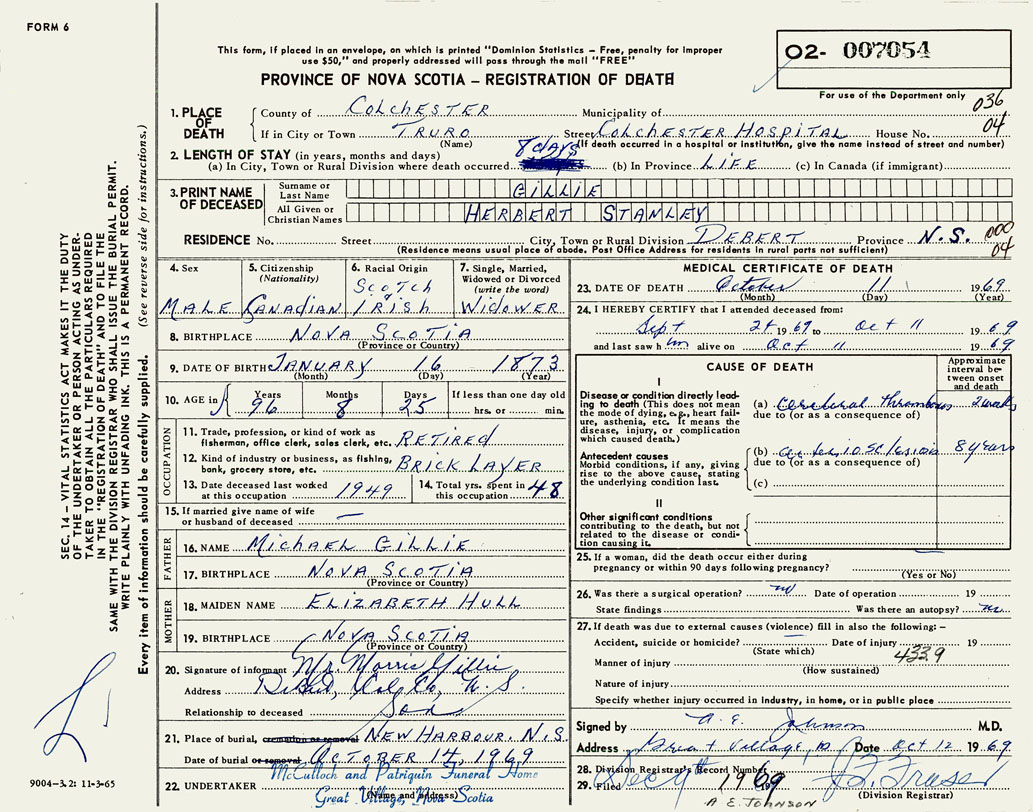 FORM 6
This form, if placed in an envelope, on which is printed "Dominion Statistics – Free, penalty for improper
use $50," and properly addressed will pass through the mail "FREE"
PROVINCE OF NOVA SCOTIA – REGISTRATION OF DEATH
02- 007054
For use of the Department only
036
04
1. PLACE OF DEATH
County of COLCHESTER Municipality of
If in City or Town TRURO Street COLCHESTER HOSPITAL House No.
(Name) (If death occurred in a hospital or institution, give the name instead of street and number)
2. LENGTH OF STAY (in years, months and days)
(a) In City, Town or Rural Division where death occurred 8 days (b) In Province LIFE (c) In Canada (if immigrant)
3. PRINT NAME OF DECEASED
Surname or Last Name GILLIE
All Given or Christian Names HERBERT STANLEY
RESIDENCE No. Street City, Town or Rural Division DEBERT Province N.S. 000
04
(Residence means usual place of abode. Post Office Address for residents in rural parts not sufficient)
4. Sex MALE
5. Citizenship (Nationality) Canadian
6. Racial Origin SCOTCH IRISH
7. Single, Married, Widowed or Divorced (write the word) WIDOWER
8. BIRTHPLACE NOVA SCOTIA
(Province or Country)
9. DATE OF BIRTH JANUARY 16 1873
(Month) (Day) (Year)
10. AGE in Years 96 Months 8 Days 25 If less than one day old
hrs. or min.
OCCUPATION
11. Trade, profession, or kind of work as
fisherman, office clerk, sales clerk, etc. RETIRED
12. Kind of industry or business, as fishing,
bank, grocery store, etc. BRICK LAYER
13. Date deceased last worked
at this occupation 1949
14. Total yrs. spent in
this occupation 48
15. If married give name of wife
or husband of deceased —
FATHER
16. NAME MICHAEL GILLIE
17. BIRTHPLACE NOVA SCOTIA
(Province or Country)
MOTHER
18. MAIDEN NAME ELIZABETH HULL
19. BIRTHPLACE NOVA SCOTIA
(Province or Country)
20. Signature of informant Mr. Morris Gillie
Address Debert, Col. Co., N.S.
Relationship to deceased Son
21. Place of burial, cremation or removal NEW HARBOUR. N.S
Date of burial or removal OCTOBER 14, 1969
22. UNDERTAKER McCulloch and Patriquin Funeral Home
(Name and address)
Great Village, Nova Scotia
MEDICAL CERTIFICATE OF DEATH
23. DATE OF DEATH October 11 1969
(Month) (Day) (Year)
24. I HEREBY CERTIFY that I attended deceased from:
Sept 1969 to Oct 11 1969
and last saw him alive on Oct 11 1969
CAUSE OF DEATH
Approximate interval between onset and death
I
Disease or condition directly leading to death (This does not mean
the mode of dying, e.g., heart failure, asthenia, etc. It means the
disease, injury, or complication
which caused death.)
(a) Cerebral Thrombosis 2 weeks
due to (or as a consequence of)
Antecedent causes
Morbid conditions, if any, giving
rise to the above cause, stating
the underlying condition last.
(b) 8 years
due to (or as a consequence of)
(c)
II
Other significant conditions
contributing to the death, but not
related to the disease or condition causing it.
25. If a woman, did the death occur either during
pregnancy or within 90 days following pregnancy?
(Yes or No)
26. Was there a surgical operation? no Date of operation 19
State findings Was there an autopsy? no
27. If death was due to external causes (violence) fill in also the following: –
Accident, suicide or homicide? Date of injury 19
(State which)
4339
Manner of injury
(How sustained)
Nature of injury
Specify whether injury occurred in industry, in home, or in public place
Signed by A. E. Johnson M.D.
Address Great Village, Date Oct 12 1969
28. Division Registrar's Record Number
29. Filed 1969
(Division Registrar)
A E. JOHNSON
SEC. 14 – VITAL STATISTICS ACT MAKES IT THE DUTY
OF THE UNDERTAKER OR PERSON ACTING AS UNDER-
TAKER TO OBTAIN ALL THE PARTICULARS REQUIRED
IN THE "REGISTRATION OF DEATH" AND TO FILE THE
SAME WITH THE DIVISION REGISTRAR WHO SHALL ISSUE THE BURIAL PERMIT.
WRITE PLAINLY WITH UNFADING INK. THIS IS A PERMANENT RECORD.
Every item of information should be carefully supplied. (See reverse side for instructions.)
9004–3.2: 11-3-65